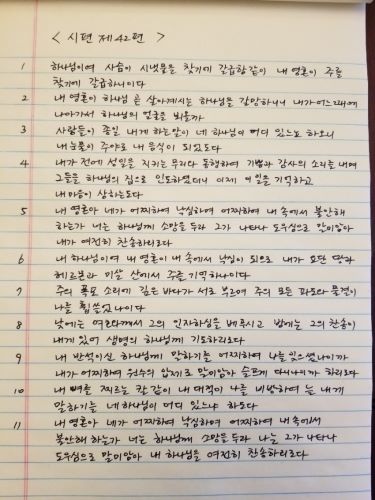 < 시편 제42편 >
1 하나님이여 사슴이 시냇물을 찾기에 갈급함같이 내 영혼이 주를
찾기에 갈급하니이다
2 내 영혼이 하나님 곧 살아계시는 하나님을 갈망하나니 내가 어느때에
나아가서 하나님의 얼굴을 뵈올까
3 사람들이 종일 내게 하는말이 네 하나님이 어디 있느뇨 하오니
내 눈물이 주야로 내 음식이 되었도다
4 내가 전에 성일을 지키는 무리와 동행하여 기쁨과 감사의 소리를 내며
그들을 하나님의 집으로 인도하였더니 이제 이 일을 기억하고
내 마음이 상하는도다
5 내 영혼아 네가 어찌하여 낙심하며 어찌하여 내 속에서 불안해
하는가 너는 하나님께 소망을 두라 그가 나타나 도우심으로 말미암아
내가 여전히 찬송하리로다
6 내 하나님이여 내 영혼이 내 속에서 낙심이 되므로 내가 요단 땅과
헤르몬과 미살 산에서 주를 기억하나이다
7 주의 폭포 소리에 깊은 바다가 서로 부르며 주의 모든 파도와 물결이
나를 휩쓸었나이다
8 낮에는 여호와께서 그의 인자하심을 베푸시고 밤에는 그의 찬송이
내게 있어 생명의 하나님께 기도하리로다
9 내 반석이신 하나님께 말하기를 어찌하여 나를 잊으셨나이까
내가 어찌하여 원수의 압제로 말미암아 슬프게 다니나이까 하리로다
10 내 뼈를 찌르는 칼 같이 내 대적이 나를 비방하여 늘 내게
말하기를 네 하나님이 어디 있느냐 하도다
11 내 영혼아 네가 어찌하여 낙심하며 어찌하여 내 속에서
불안해 하는가 너는 하나님께 소망을 두라 나는 그가 나타나
도우심으로 말미암아 내 하나님을 여전히 찬송하리로다